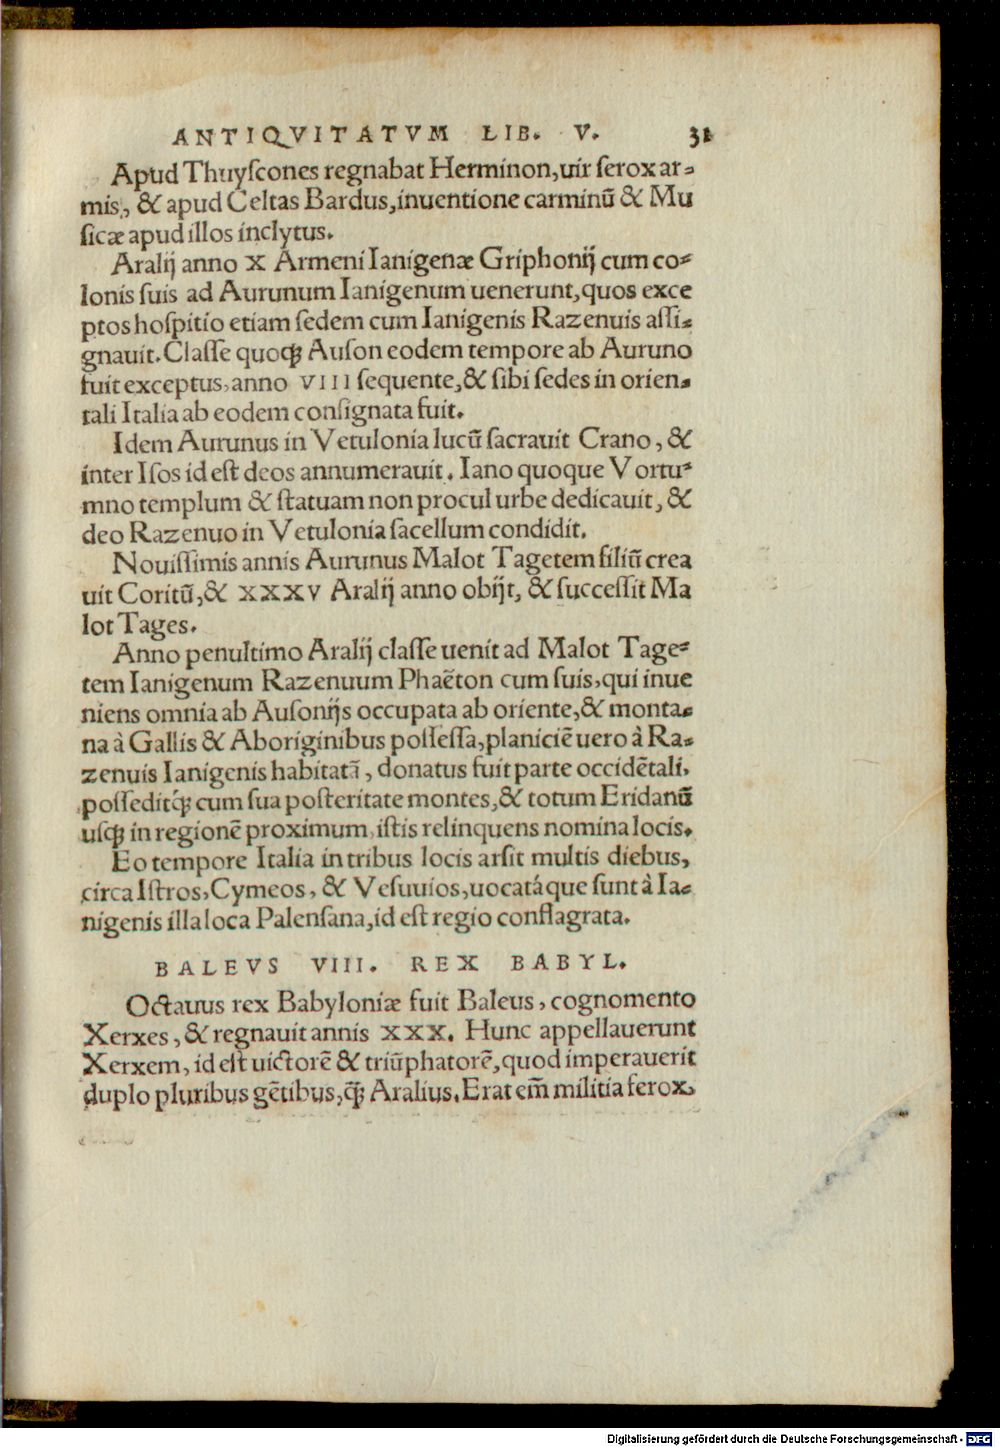 ANTIQVITATVM LIB. V. 31
Apud Thuyſcones regnabat Herminon, uir ferox ar⸗
mis, & apud Celtas Bardus, inuentione carminū & Mu
ſicæ apud illos inclytus.
Aralij anno X Armeni Ianigenæ Griphonij cum co⸗
lonis ſuis ad Aurunum Ianigenum uenerunt, quos exce
ptos hoſpitio etiam ſedem cum Ianigenis Razenuis aſſi⸗
gnauit. Claſſe quoqꝫ Auſon eodem tempore ab Auruno
fuit exceptus, anno VIII ſequente, & ſibi ſedes in orien⸗
tali Italia ab eodem conſignata fuit.
Idem Aurunus in Vetulonia lucū ſacrauit Crano, &
inter Iſos id eſt deos annumerauit. Iano quoque Vortu⸗
mno templum & ſtatuam non procul urbe dedicauit, &
deo Razenuo in Vetulonia ſacellum condidit.
Nouiſſimis annis Aurunus Malot Tagetem filiū crea
uit Coritū, & XXXV Aralij anno obijt, & ſucceſſit Ma
lot Tages.
Anno penultimo Aralij claſſe uenit ad Malot Tage⸗
tem Ianigenum Razenuum Phaëton cum ſuis, qui inue
niens omnia ab Auſonijs occupata ab oriente, & monta⸗
na à Gallis & Aboriginibus poſſeſſa, planiciē uero à Ra⸗
zenuis Ianigenis habitatā, donatus fuit parte occidētali,
poſſeditq́ꝫ cum ſua poſteritate montes, & totum Eridanū
uſqꝫ in regionē proximum, iſtis relinquens nomina locis.
Eo tempore Italia in tribus locis arſit multis diebus,
circa Iſtros, Cymeos, & Veſuuios, uocatáque ſunt à Ia⸗
nigenis illa loca Palenſana, id eſt regio conflagrata.
BALEVS VIII. REX BABYL.
Octauus rex Babyloniæ fuit Baleus, cognomento
Xerxes, & regnauit annis XXX. Hunc appellauerunt
Xerxem, id eſt uictorē & triūphatorē, quod imperauerit
duplo pluribus gētibus, q̄ꝫ Aralius. Erat em̄ militia ferox,
Digitalisierung gefördert durch die Deutsche Forschungsgemeinschaft - DFG